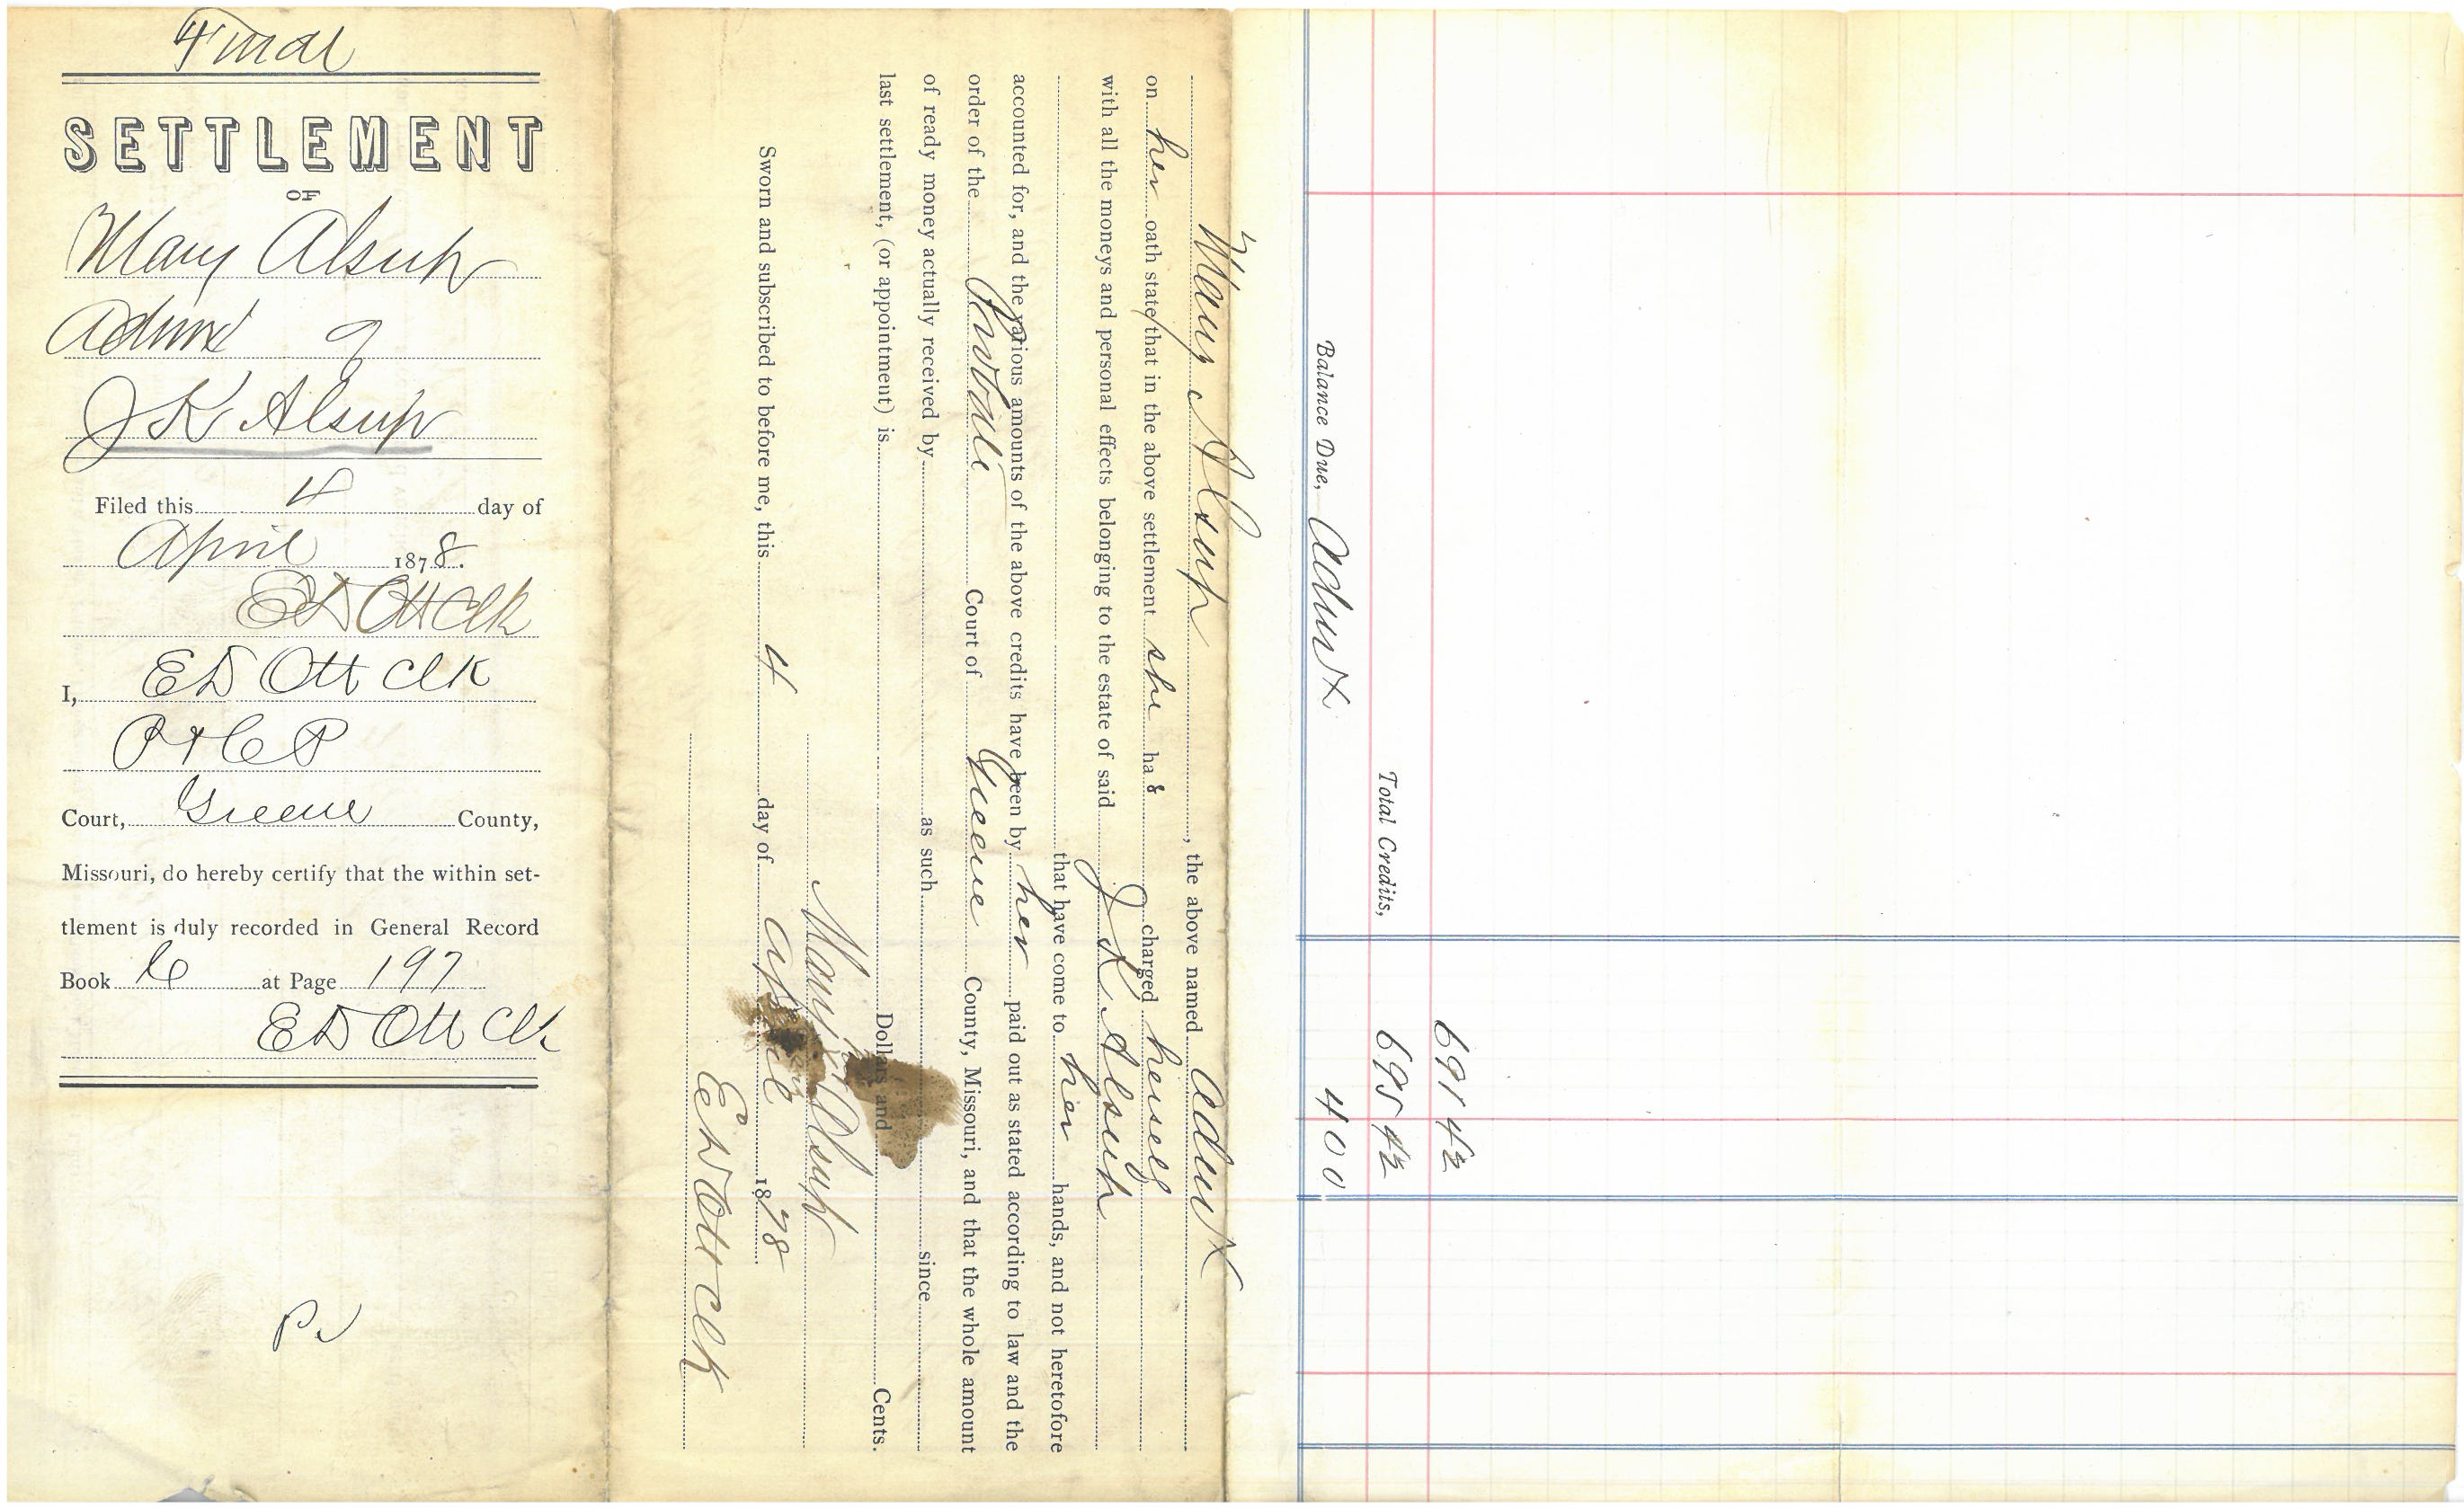 Final
SETTLEMENT
OF
Mary Alsup
Admx of
J K Alsup
Filed this 4 day of
April 1878.
E D Ott Clk
I, E D Ott Clk
P & C P
Court, Greene County,
Missouri, do hereby certify that the within set-
tlement is duly recorded in General Record
Book 6 at Page 197
E D Ott Clk
P.
Mary Alsup, the above named Admx
on her oath state that in the above settlement she has charged herself
with all the moneys and personal effects belonging to the estate of said J K Alsup
that have come to her hands, and not heretofore
accounted for, and the various amounts of the above credits have been by her paid out as stated according to law and the
order of the Probate Court of Greene County, Missouri, and that the whole amount
of ready money actually received by as such since
last settlement, (or appointment) is Dollars and Cents.
Mary Alsup
Sworn and subscribed to before me, this 4 day of April 1878
E D Ott Clk
691 42
Total Credits, 695 42
Balance Due, Admx 4 00